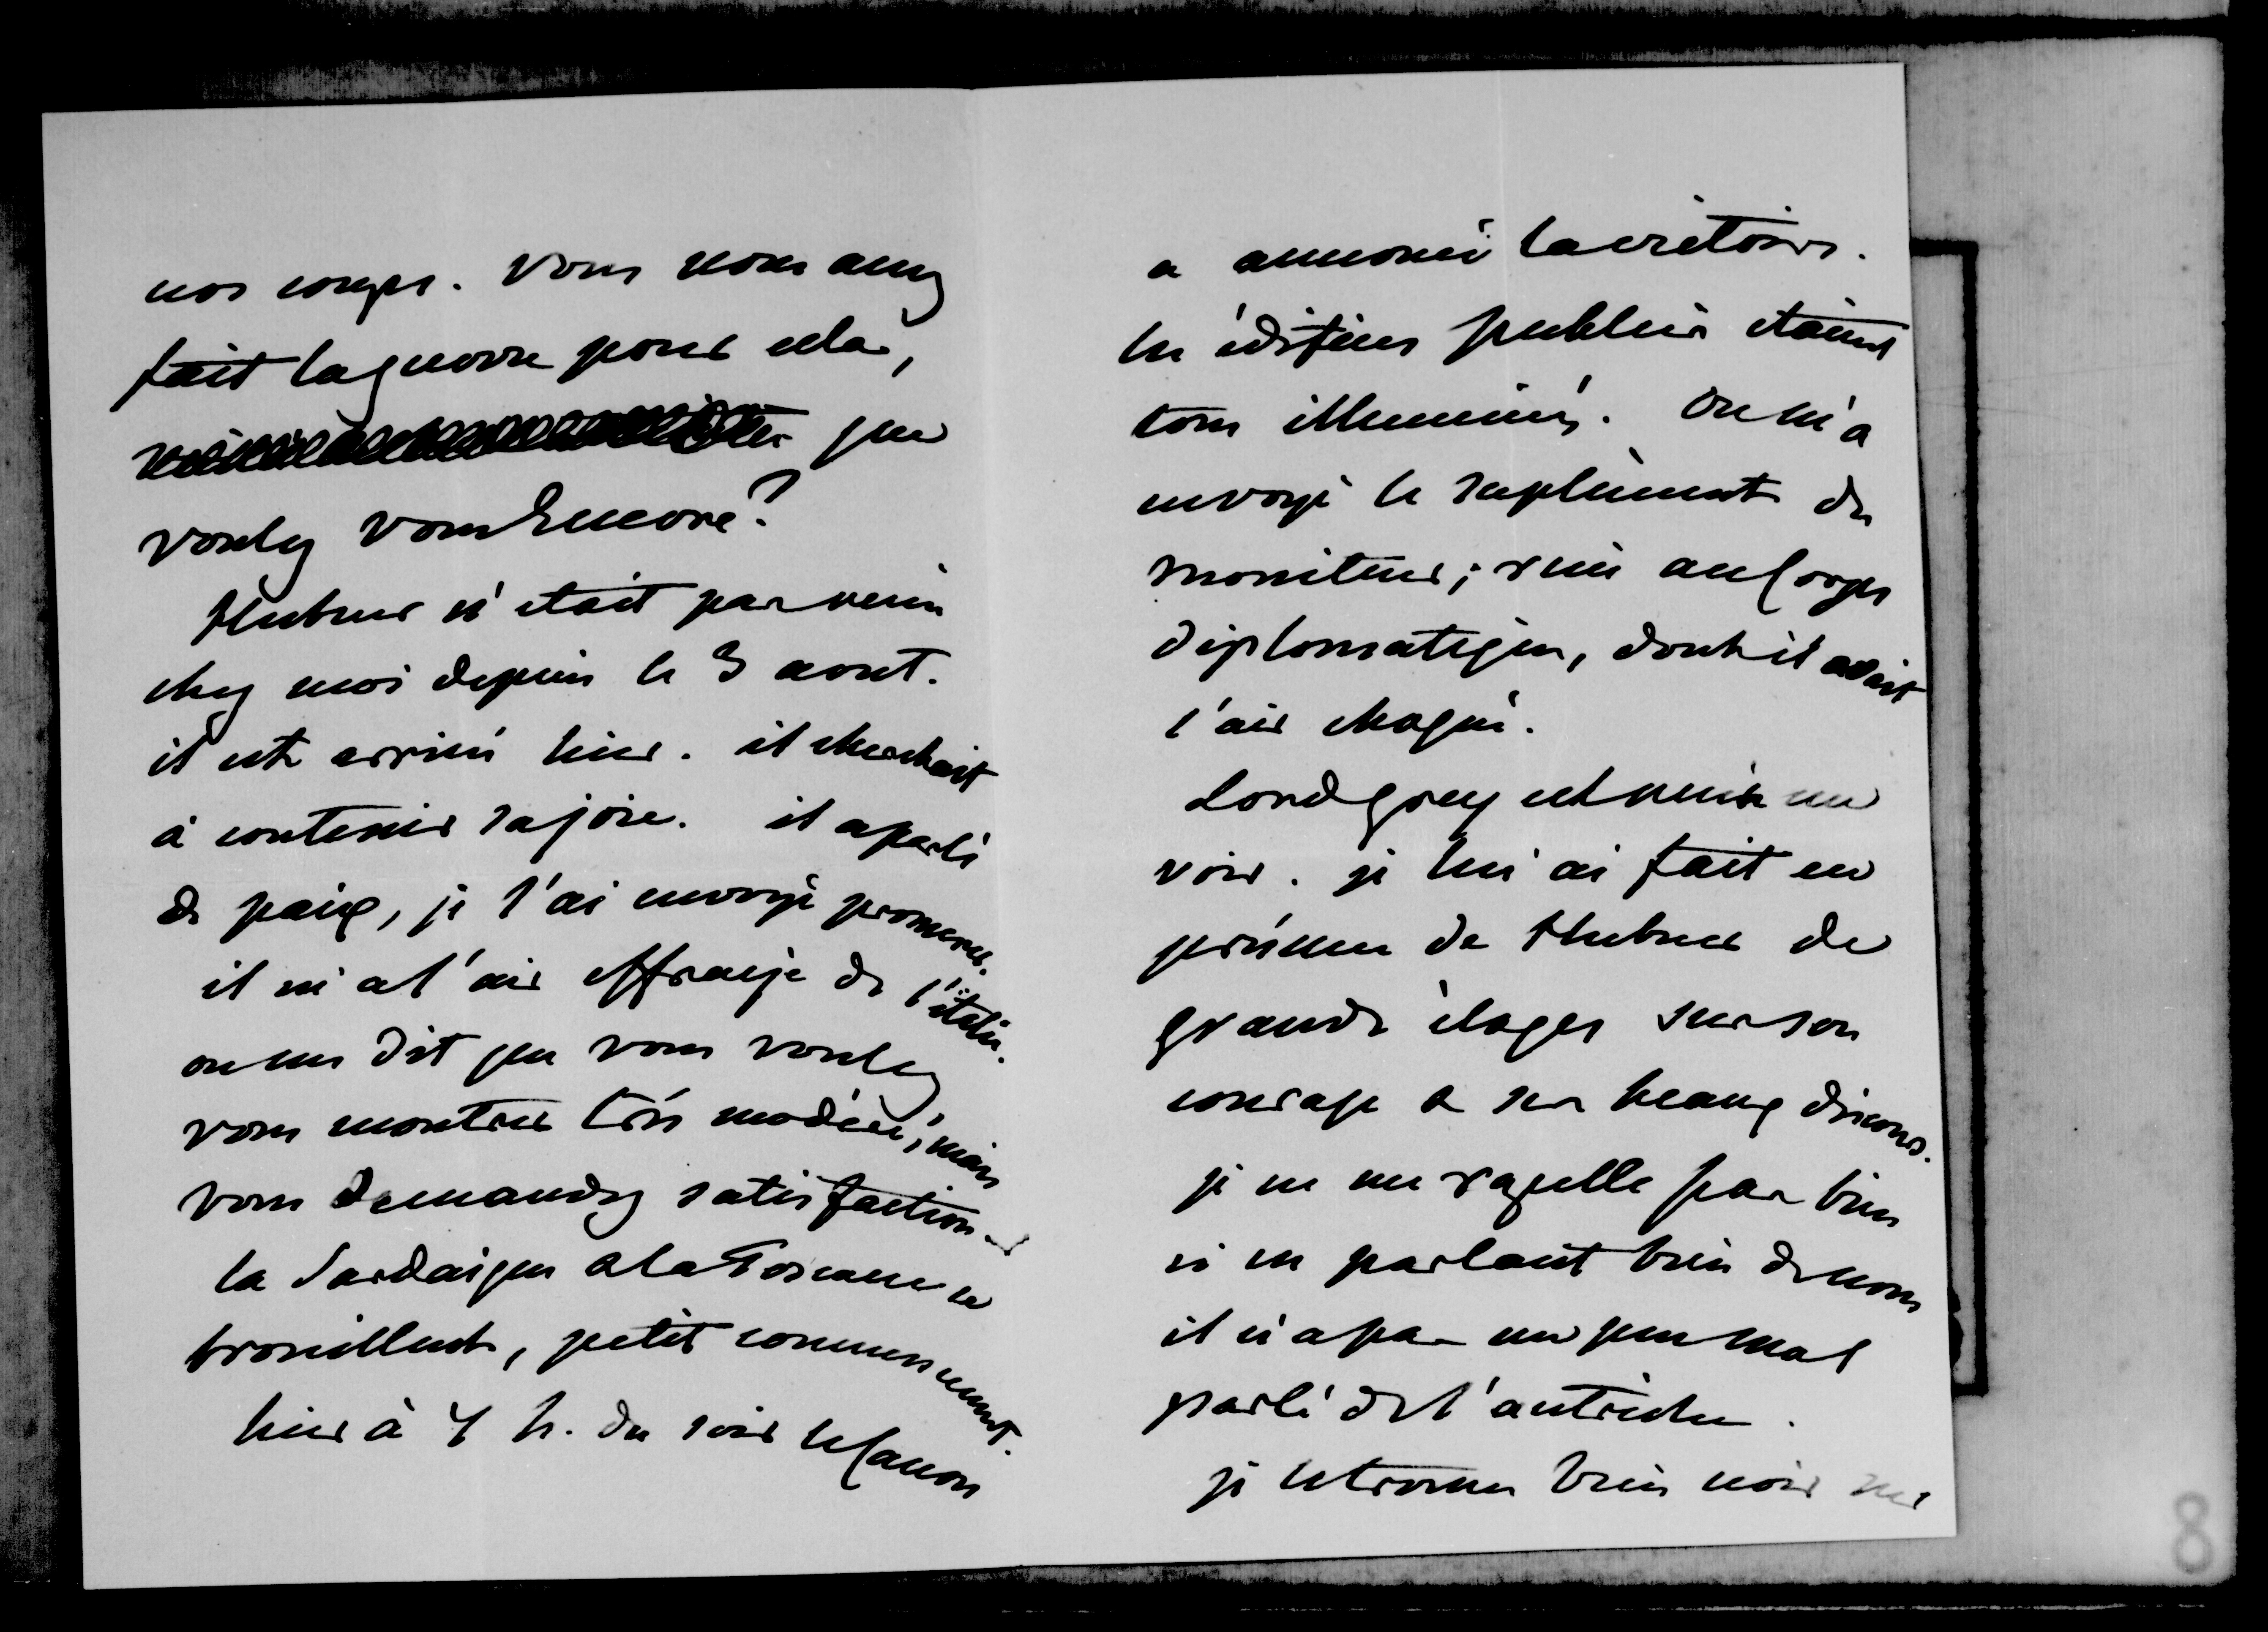 nos coups. vous nous avez
fait la guerre pour cela,
que
voulez vous encore?
Hubner n'etait pas venu
chez moi depuis le 3 aout.
il est arrivé hier. il cherchait
à contenir sa joie. il a parlé
de paix, je l'ai envoyé promener.
il m'a l'air effrayé de l'italie.
on me dit que vous voulez
vous montrer très modéré, mais
vous demandez satisfaction.
la Sardaigne & la Toscane se
brouillent, petit commencement.
hier à 4 h. du soir le Canon
a annoncé la victoire.
les édifices publics étaient
tous illuminés. On m'a
envoyé le suplément du
moniteur; rien au Corps
diplomatique, dont il avait
l'air choqué.
Lord Grey est venu me
voir. je lui ai fait en
présence de Hubner de
grands éloges sur son
courage & ses beaux discours.
je ne me rapelle pas bien
si en parlant bien de nous
il n'a pas un peu mal
parlé de l'autriche.
je le trouve bien noir sur
8